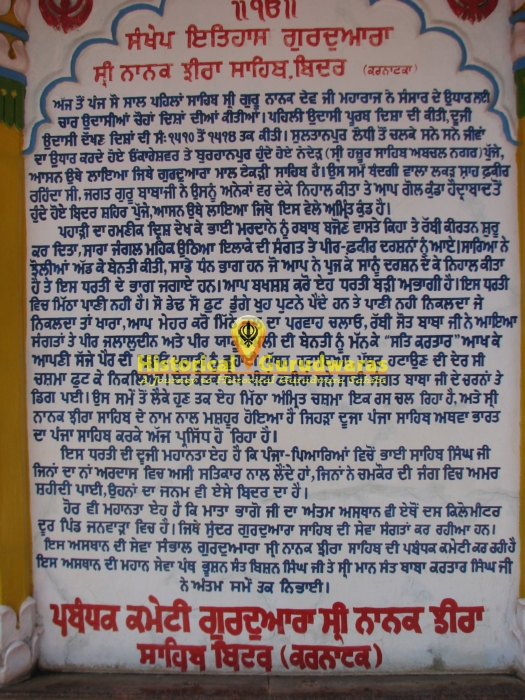 ॥੧ੳ॥
ਸੰਖੇਪ ਇਤਿਹਾਸ ਗੁਰਦੁਆਰਾ
ਸ੍ਰੀ ਨਾਨਕ ਝੀਰਾ ਸਾਹਿਬ, ਬਿਦਰ (ਕਰਨਾਟਕਾ)
ਅੱਜ ਤੋਂ ਪੰਜ ਸੋ ਸਾਲ ਪਹਿਲਾਂ ਸਾਹਿਬ ਸ੍ਰੀ ਗੁਰੂ ਨਾਨਕ ਦੇਵ ਜੀ ਮਹਾਰਾਜ ਨੇ ਸੰਸਾਰ ਦੇ ਉਧਾਰ ਲਈ
ਚਾਰ ਉਦਾਸੀਆਂ ਚੋਹਾਂ ਦਿਸ਼ਾਂ ਦੀਆਂ ਕੀਤੀਆਂ। ਪਹਿਲੀ ਉਦਾਸੀ ਪੂਰਬ ਦਿਸ਼ਾ ਦੀ ਕੀਤੀ, ਦੂਜੀ
ਉਦਾਸੀ ਦੱਖਣ ਦਿਸ਼ਾਂ ਦੀ ਸੰ: ੧੫੧੦ ਤੋਂ ੧੫੧੪ ਤਕ ਕੀਤੀ। ਸੁਲਤਾਨਪੁਰ ਲੋਧੀ ਤੋਂ ਚਲਕੇ ਸਨੇ ਸਨੇ ਜੀਵਾਂ
ਦਾ ਉਧਾਰ ਕਰਦੇ ਹੋਏ ਓਂਕਾਰੇਸ਼ਵਰ ਤੇ ਬੁਰਹਾਨਪੁਰ ਹੁੰਦੇ ਹੋਏ ਨੰਦੇੜ (ਸ੍ਰੀ ਹਜ਼ੂਰ ਸਾਹਿਬ ਅਬਚਲ ਨਗਰ) ਪੁੱਜੇ,
ਆਸਨ ਉਥੇ ਲਾਇਆ ਜਿਥੇ ਗੁਰਦੁਆਰਾ ਮਾਲ ਟੇਕੜੀ ਸਾਹਿਬ ਹੈ। ਉਸ ਸਮੇਂ ਬੰਦਗੀ ਵਾਲਾ ਲਕੜ ਸ਼ਾਹ ਫ਼ਕੀਰ
ਰਹਿੰਦਾ ਸੀ, ਜਗਤ ਗੁਰੂ ਬਾਬਾਜੀ ਨੇ ਉਸਨੂੰ ਅਨੇਕਾਂ ਵਰ ਦੇਕੇ ਨਿਹਾਲ ਕੀਤਾ ਤੇ ਆਪ ਗੋਲ ਕੁੰਡਾ ਹੈਦ੍ਰਾਬਾਦ ਤੋਂ
ਹੁੰਦੇ ਹੋਏ ਬਿਦਰ ਸ਼ਹਿਰ ਪੁੱਜੇ, ਆਸਨ ਉਥੇ ਲਾਇਆ ਜਿਥੇ ਇਸ ਵੇਲੇ ਅਮ੍ਰਿੰਤ ਕੁੰਡ ਹੈ।
ਪਹਾੜੀ ਦਾ ਰਮਣੀਕ ਦ੍ਰਿਸ਼ ਦੇਖ ਕੇ ਭਾਈ ਮਰਦਾਨੇ ਨੂੰ ਰਬਾਬ ਬਜੋਣ ਵਾਸਤੇ ਕਿਹਾ ਤੇ ਰੱਬੀ ਕੀਰਤਨ ਸ਼ੁਰੂ
ਕਰ ਦਿਤਾ, ਸਾਰਾ ਜੰਗਲ ਮਹਿਕ ਉਠਿਆ ਇਲਾਕੇ ਦੀ ਸੰਗਤ ਤੇ ਪੀਰ-ਫ਼ਕੀਰ ਦਰਸ਼ਨਾਂ ਨੂੰ ਆਏ। ਸਾਰਿਆਂ ਨੇ
ਝੋਲੀਆਂ ਅੱਡ ਕੇ ਬੇਨਤੀ ਕੀਤੀ, ਸਾਡੇ ਧੰਨ ਭਾਗ ਹਨ ਜੋ ਆਪ ਨੇ ਪੁਜ ਕੇ ਸਾਨੂੰ ਦਰਸ਼ਨ ਦੇ ਕੇ ਨਿਹਾਲ ਕੀਤਾ
ਹੈ ਤੇ ਇਸ ਧਰਤੀ ਦੇ ਭਾਗ ਜਗਾਏ ਹਨ। ਆਪ ਬਖਸ਼ਸ਼ ਕਰੋ ਏਹ ਧਰਤੀ ਬੜੀ ਅਭਾਗੀ ਹੈ। ਇਸ ਧਰਤੀ
ਵਿਚ ਮਿੱਠਾ ਪਾਣੀ ਨਹੀ ਹੈ। ਸੋ ਡੇਢ ਸੋ ਫੁਟ ਡੂੰਗੇ ਖੂਹ ਪੁਟਨੇ ਪੈਂਦੇ ਹਨ ਤੇ ਪਾਣੀ ਨਹੀ ਨਿਕਲਦਾ ਜੇ
ਨਿਕਲਦਾ ਤਾਂ ਖਾਰਾ, ਆਪ ਮੇਹਰ ਕਰੋ ਮਿੱਠੇ ਦਾ ਪਰਵਾਹ ਚਲਾਓ, ਰੱਬੀ ਜੋਤ ਬਾਬਾ ਜੀ ਨੇ ਆਇਆ
ਸੰਗਤਾਂ ਤੇ ਪੀਰ ਜਲਾਲੁਦੀਨ ਅਤੇ ਪੀਰ ਦੀ ਬੇਨਤੀ ਨੂੰ ਮੰਨਕੇ "ਸਤਿ ਕਰਤਾਰ" ਆਖ ਕੇ
ਆਪਣੀ ਸੱਜੇ ਪੈਰ ਦੀ ਹਟਾਉਣ ਦੀ ਦੇਰ ਸੀ
ਚਸ਼ਮਾ ਫੁਟ ਕੇ ਸੰਗਤ ਬਾਬਾ ਜੀ ਦੇ ਚਰਨਾਂ ਤੇ
ਡਿਗ ਪਈ। ਉਸ ਸਮੇਂ ਤੋਂ ਲੈਕੇ ਹੁਣ ਤਕ ਏਹ ਮਿੱਠਾ ਅੰਮ੍ਰਿਤ ਚਸ਼ਮਾ ਇਕ ਰਸ ਚਲ ਰਿਹਾ ਹੈ, ਅਤੇ ਸ੍ਰੀ
ਨਾਨਕ ਝੀਰਾ ਸਾਹਿਬ ਦੇ ਨਾਮ ਨਾਲ ਮਸ਼ਹੂਰ ਹੋਇਆ ਹੈ ਜਿਹੜਾ ਦੂਜਾ ਪੰਜਾ ਸਾਹਿਬ ਅਥਵਾ ਭਾਰਤ
ਦਾ ਪੰਜਾ ਸਾਹਿਬ ਕਰਕੇ ਅੱਜ ਪ੍ਰਸਿੱਧ ਹੋ ਰਿਹਾ ਹੈ।
ਇਸ ਧਰਤੀ ਦੀ ਦੂਜੀ ਮਹਾਨਤਾ ਏਹ ਹੈ ਕਿ ਪੰਜਾ-ਪਿਆਰਿਆਂ ਵਿਚੋਂ ਭਾਈ ਸਾਹਿਬ ਸਿੰਘ ਜੀ
ਜਿਨਾਂ ਦਾ ਨਾਂ ਅਰਦਾਸ ਵਿਚ ਅਸੀ ਸਤਿਕਾਰ ਨਾਲ ਲੈਂਦੇ ਹਾਂ, ਜਿਨਾਂ ਨੇ ਚਮਕੌਰ ਦੀ ਜੰਗ ਵਿਚ ਅਮਰ
ਸ਼ਹੀਦੀ ਪਾਈ, ਉਹਨਾਂ ਦਾ ਜਨਮ ਵੀ ਏਸੇ ਬਿਦਰ ਦਾ ਹੈ।
ਹੋਰ ਵੀ ਮਹਾਨਤਾ ਏਹ ਹੈ ਕਿ ਮਾਤਾ ਭਾਗੋ ਜੀ ਦਾ ਅੰਤਮ ਅਸਥਾਨ ਵੀ ਏਥੋਂ ਦਸ ਕਿਲੋਮੀਟਰ
ਦੂਰ ਪਿੰਡ ਜਨਵਾੜਾ ਵਿਚ ਹੈ। ਜਿਥੇ ਸੁੰਦਰ ਗੁਰਦੁਆਰਾ ਸਾਹਿਬ ਦੀ ਸੇਵਾ ਸੰਗਤਾਂ ਕਰ ਰਹੀਆ ਹਨ।
ਇਸ ਅਸਥਾਨ ਦੀ ਸੇਵਾ ਸੰਭਾਲ ਗੁਰਦੁਆਰਾ ਸ੍ਰੀ ਨਾਨਕ ਝੀਰਾ ਸਾਹਿਬ ਦੀ ਪਬੰਧਕ ਕਮੇਟੀ ਕਰ ਰਹੀ ਹੈ
ਇਸ ਅਸਥਾਨ ਦੀ ਮਹਾਨ ਸੇਵਾ ਪੰਥ ਭੂਸ਼ਨ ਸੰਤ ਬਿਸ਼ਨ ਸਿੰਘ ਜੀ ਤੇ ਸ੍ਰੀ ਮਾਨ ਸੰਤ ਬਾਬਾ ਕਰਤਾਰ ਸਿੰਘ ਜੀ
ਨੇ ਅੰਤਮ ਸਮੇਂ ਤਕ ਨਿਭਾਈ।
ਪਰਬੰਧਕ ਕਮੇਟੀ ਗੁਰਦੁਆਰਾ ਸ੍ਰੀ ਨਾਨਕ ਝੀਰਾ
ਸਾਹਿਬ ਬਿਦਰ (ਕਰਨਾਟਕ)
Historical Gurudwaras
A Journey to Historical Gurudwara Sahibs